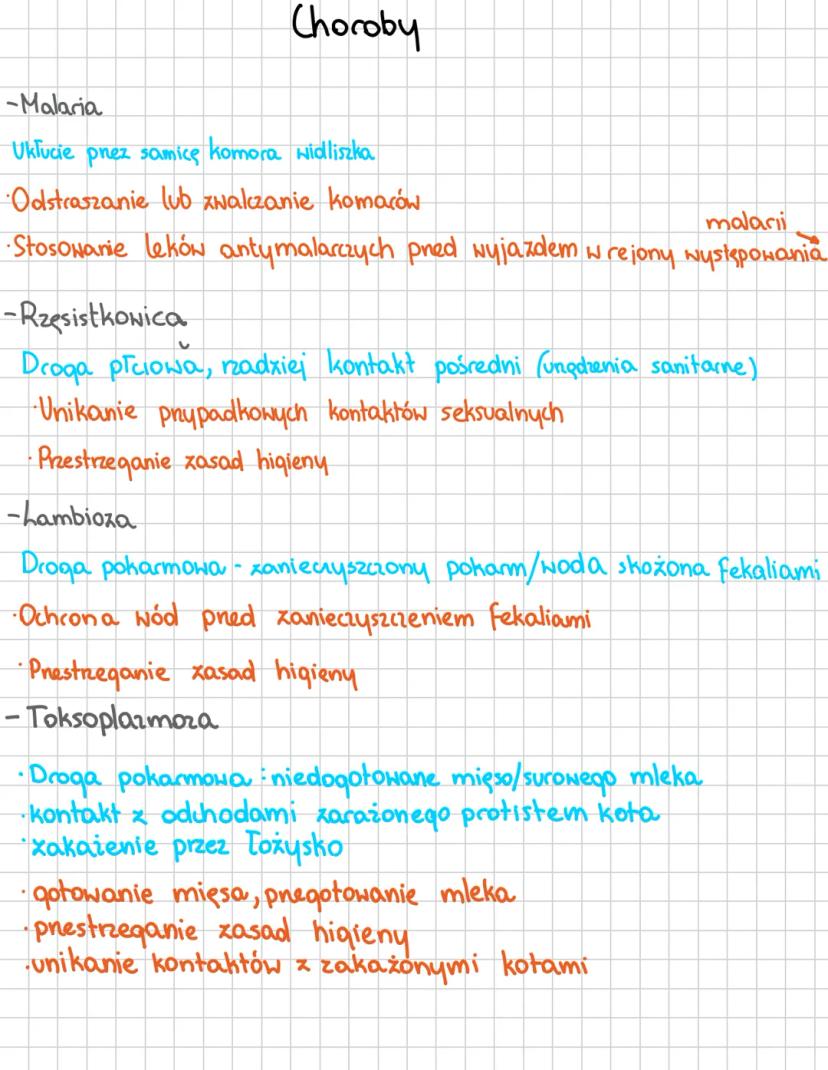 Choroby
-Malaria
Ukłucie przez samicę komora widliszka
·Odstraszanie lub zwalczanie komarów
malarii
·Stosowanie leków antymalarczych przed wyjazdem w rejony występowania
-Rzęsistkowica
Droga płciowa, rzadziej kontakt pośredni (urządzenia sanitarne)
·Unikanie przypadkowych kontaktów seksualnych
·Przestrzeganie zasad higieny
-Lambioza
Droga pokarmowa - zanieczyszczony pokarm/woda skożona fekaliami
·Ochrona wód przed zanieczyszczeniem fekaliami
·Przestrzeganie zasad higieny
- Toksoplazmoza
·Droga pokarmowa : niedogotowane mięso/surowego mleka
·kontakt z odchodami zarażonego protistem kota
·zakażenie przez łożysko
·gotowanie mięsa, przegotowanie mleka
·przestrzeganie zasad higieny
·unikanie kontaktów z zakażonymi kotami